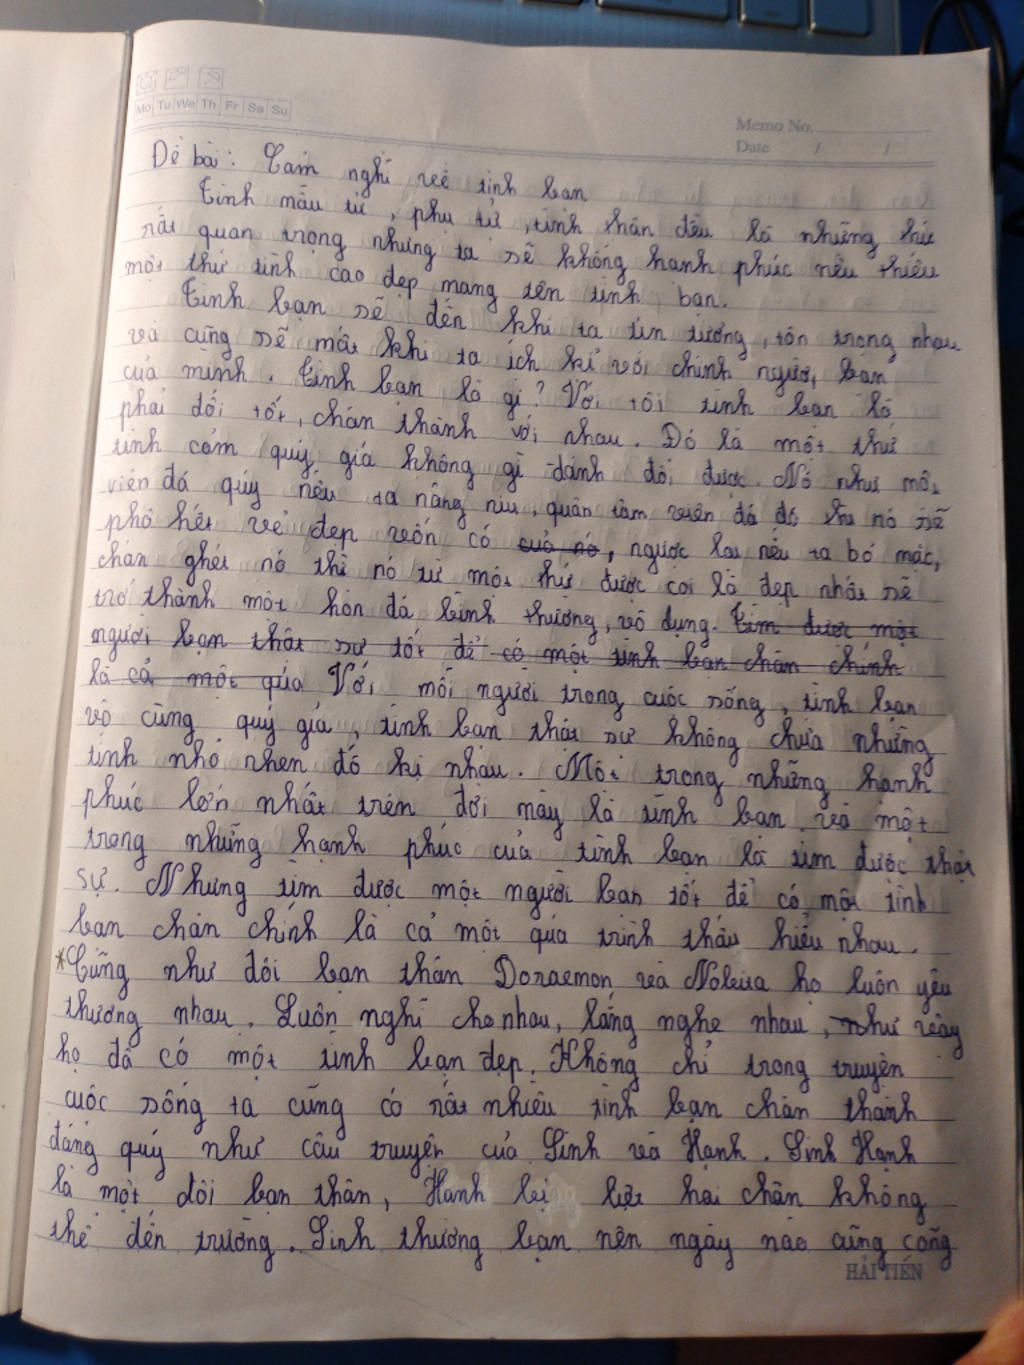 Mo Tu We Th Fr Sa Su
Memo No.
Date / /
Đề bài: Cảm nghĩ về tình bạn
Tình mẫu tử, phụ tử, tình thân đều là những thứ
rất quan trọng nhưng ta sẽ không hạnh phúc nếu thiếu
một thứ tình cao đẹp mang tên tình bạn.
Tình bạn sẽ đến khi ta tin tưởng, tôn trọng nhau
và cũng sẽ mất khi ta ích kỉ với chính người bạn
của mình. Tình bạn là gì? Với tôi tình bạn là
phải đối tốt, chân thành với nhau. Đó là một thứ
tình cảm quý giá không gì đánh đổi được. Nó như một
viên đá quý nếu ta nâng niu, quan tâm viên đá đó thì nó sẽ
phô hết vẻ đẹp vốn có của nó, ngược lại nếu ta bỏ mặc,
chán ghét nó thì nó từ một thứ được coi là đẹp nhất sẽ
trở thành một hòn đá bình thường, vô dụng. Tìm được một
người bạn thật sự tốt để có một tình bạn chân chính
là cả một qúa Với mỗi người trong cuộc sống, tình bạn
vô cùng quý giá, tình bạn thật sự không chứa những
tính nhỏ nhen đố kị nhau. Một trong những hạnh
phúc lớn nhất trên đời này là tình bạn và một
trong những hạnh phúc của tình bạn là tìm được thật
sự. Nhưng tìm được một người bạn tốt để có một tình
bạn chân chính là cả một qúa trình thấu hiểu nhau.
*Cũng như đôi bạn thân Doraemon và Nobita họ luôn yêu
thương nhau. Luôn nghĩ cho nhau, lắng nghe nhau, như vậy
họ đã có một tình bạn đẹp. Không chỉ trong truyện
cuộc sống ta cũng có rất nhiều tình bạn chân thành
đáng quý như câu truyện của Sinh và Hạnh. Sinh Hạnh
là một đôi bạn thân, Hạnh bị liệt hai chân không
thể đến trường. Sinh thương bạn nên ngày nào cũng cõng
HẢI TIẾN